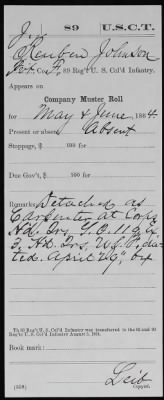 J. 89 U.S.C.T.
Reuben Johnson
Co. F, 89 Reg't U. S. Col'd Infantry.
Appears on
Company Muster Roll
for May & June, 1864
Present or absent, Absent
Stoppage, $ 100 for
Due Gov't, $ 100 for
Remarks: Detached as
Carpenter at Corps
Hd. Qrs. S.O. 119
3, Hd. Qrs. U.S.
ted. April 29", by
Th 89 Reg't U. S. Col'd Infantry was transferred to the
Col'd Infantry August 5, 1864.
Book mark:
Leib
(358) Copyist.